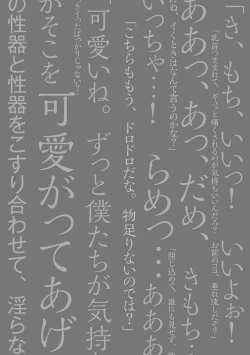 「き、もち、いいっ！　いいよぉ！
「乳首つままれて、ぎゅっと痛くされるのが気持ちいいんだろ？　お前のココ、垂れ流しだぞ？」
ああっ、あっ、だめ、きもち…
イくときはなんて言うのかな？」
いっちゃ…！　らめっ…あああ
「閉じ込めて、誰にも見せず、
「こちらももう、ドロドロだな。物足りないのでは？」
「可愛いね。ずっと僕たちが気持
ばっかりじゃない？」
がそこを可愛がってあげ
の性器と性器をこすり合わせて、淫らな